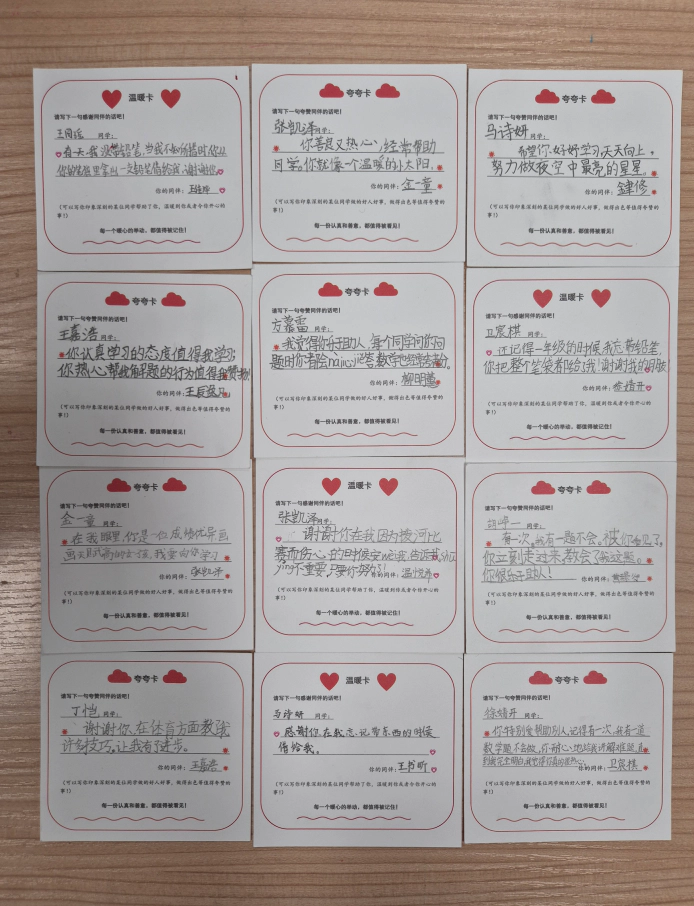 温暖卡
请写下一句感谢同伴的话吧!
同学:
有一天,我没带铅笔,当我不知所措时,你从
你的笔袋里拿出一支铅笔借给我,谢谢你。
你的同伴:
(可以写你印象深刻的某位同学帮助了你、温暖到你或者令你开心的
事!)
每一个暖心的举动,都值得被记住!
夸夸卡
请写下一句夸赞同伴的话吧!
张凯泽同学:
你善良又热心,经常帮助
同学。你就像一个温暖的小太阳.
你的同伴:金一童
(可以写你印象深刻的某位同学做的好人好事、做得出色等值得夸赞的
事!)
每一份认真和善意,都值得被看见!
夸夸卡
请写下一句夸赞同伴的话吧!
马诗妍 同学:
希望你好好学习天天向上,
努力做夜空中最亮的星星。
你的同伴:
(可以写你印象深刻的某位同学做的好人好事、做得出色等值得夸赞的
事!)
每一份认真和善意,都值得被看见!
夸夸卡
请写下一句夸赞同伴的话吧!
王嘉浩 同学:
你认真学习的态度值得我学习,
你热人帮助解题的行为值得我赞扬!
你的同伴:
(可以写你印象深刻的某位同学做的好人好事、做得出色等值得夸赞的
事!)
每一份认真和善意,都值得被看见!
夸夸卡
请写下一句夸赞同伴的话吧!
同学:
我觉得你乐于助人,每个同学问你问
题时你都会nàixīn解答,数学也经常考满分。
你的同伴:柳明
(可以写你印象深刻的某位同学做的好人好事、做得出色等值得夸赞的
事!)
每一份认真和善意,都值得被看见!
温暖卡
请写下一句感谢同伴的话吧!
卫宸棋 同学:
还记得一年级的时候我忘带铅笔,
你把整个笔袋都给了我!谢谢我的朋友!
你的同伴:徐婧开
(可以写你印象深刻的某位同学帮助了你、温暖到你或者令你开心的
事!)
每一个暖心的举动,都值得被记住!
夸夸卡
请写下一句夸赞同伴的话吧!
金一童 同学:
在我眼里,你是一位成绩优异画
画天赋高的女孩,我要向你学习
你的同伴:张凯泽
(可以写你印象深刻的某位同学做的好人好事、做得出色等值得夸赞的
事!)
每一份认真和善意,都值得被看见!
温暖卡
请写下一句感谢同伴的话吧!
张凯泽同学:
谢谢你在我因为拔河比
赛而伤心的时候安wèi我,告诉我shū
yíng不重要,只要你努力了!
你的同伴:
(可以写你印象深刻的某位同学帮助了你、温暖到你或者令你开心的
事!)
每一个暖心的举动,都值得被记住!
夸夸卡
请写下一句夸赞同伴的话吧!
同学:
有一次,我有一题不会,被你看见了,
你立刻走过来,教会了我这题。
你很乐于助人!
你的同伴:
(可以写你印象深刻的某位同学做的好人好事、做得出色等值得夸赞的
事!)
每一份认真和善意,都值得被看见!
夸夸卡
请写下一句夸赞同伴的话吧!
丁恺 同学:
谢谢你,在体育方面教我
许多技巧,让我有了进步。
你的同伴:王嘉浩
(可以写你印象深刻的某位同学做的好人好事、做得出色等值得夸赞的
事!)
每一份认真和善意,都值得被看见!
温暖卡
请写下一句感谢同伴的话吧!
马诗妍 同学:
感谢你,在我忘记带东西的时候
借给我。
你的同伴:王书昕
(可以写你印象深刻的某位同学帮助了你、温暖到你或者令你开心的
事!)
每一个暖心的举动,都值得被记住!
夸夸卡
请写下一句夸赞同伴的话吧!
徐婧开 同学:
你特别爱帮助别人,记得有一次,我有一道
数学题不会做,你耐心地给我讲解难题,直
到我完全明白,我觉得你真的很热心
你的同伴:卫宸棋
(可以写你印象深刻的某位同学做的好人好事、做得出色等值得夸赞的
事!)
每一份认真和善意,都值得被看见!